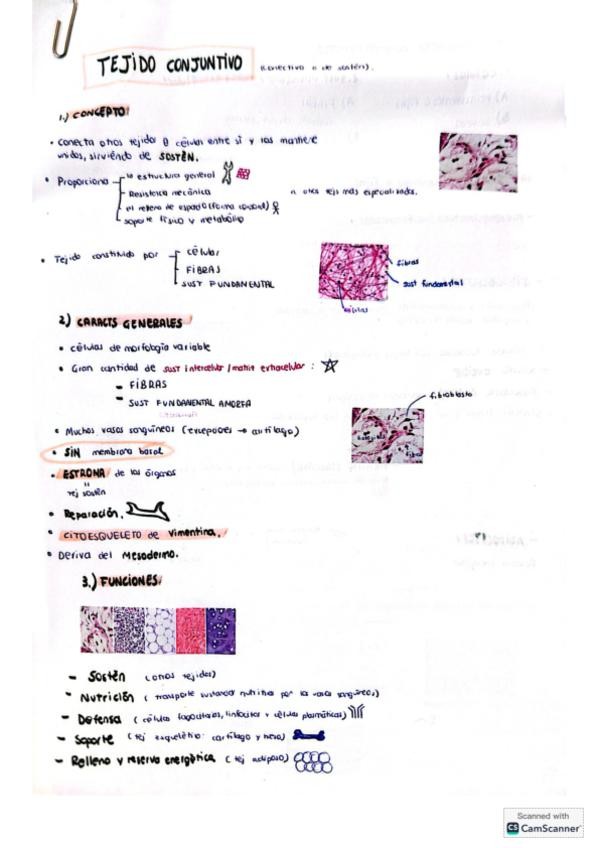 TEJIDO CONJUNTIVO (conectivo o de sostén).
1.) CONCEPTO
• Conecta otros tejidos o células entre sí y las mantiene
unidos, sirviendo de SOSTÉN.
• Proporciona
la estructura general
Resistencia mecánica
el relleno de espacio (forma corporal)
soporte físico y metabólico
a otros tejs más especializados.
• Tejido constituido por
células
FIBRAS
SUST FUNDAMENTAL
fibras
sust fundamental
células
2) CARACTS GENERALES
• células de morfología variable
• Gran cantidad de sust intercelular/matriz extracelular :
- FIBRAS
- SUST FUNDAMENTAL AMORFA
• Muchos vasos sanguíneos (excepciones → cartílago)
fibroblasto
fibras
• SIN membrana basal
• ESTROMA de los órganos
"
tej sostén
• Reparación.
• CITOESQUELETO de vimentina.
• Deriva del Mesodermo.
3.) FUNCIONES
- Sostén (otros tejidos)
- Nutrición ( transporte sustancias nutritivas por los vasos sanguíneos)
- Defensa ( células fagocitarias, linfocitos y células plasmáticas)
- Soporte ( tej esquelético: cartílago y hueso)
- Relleno y reserva energética ( tej adiposo)
Scanned with
CS CamScanner